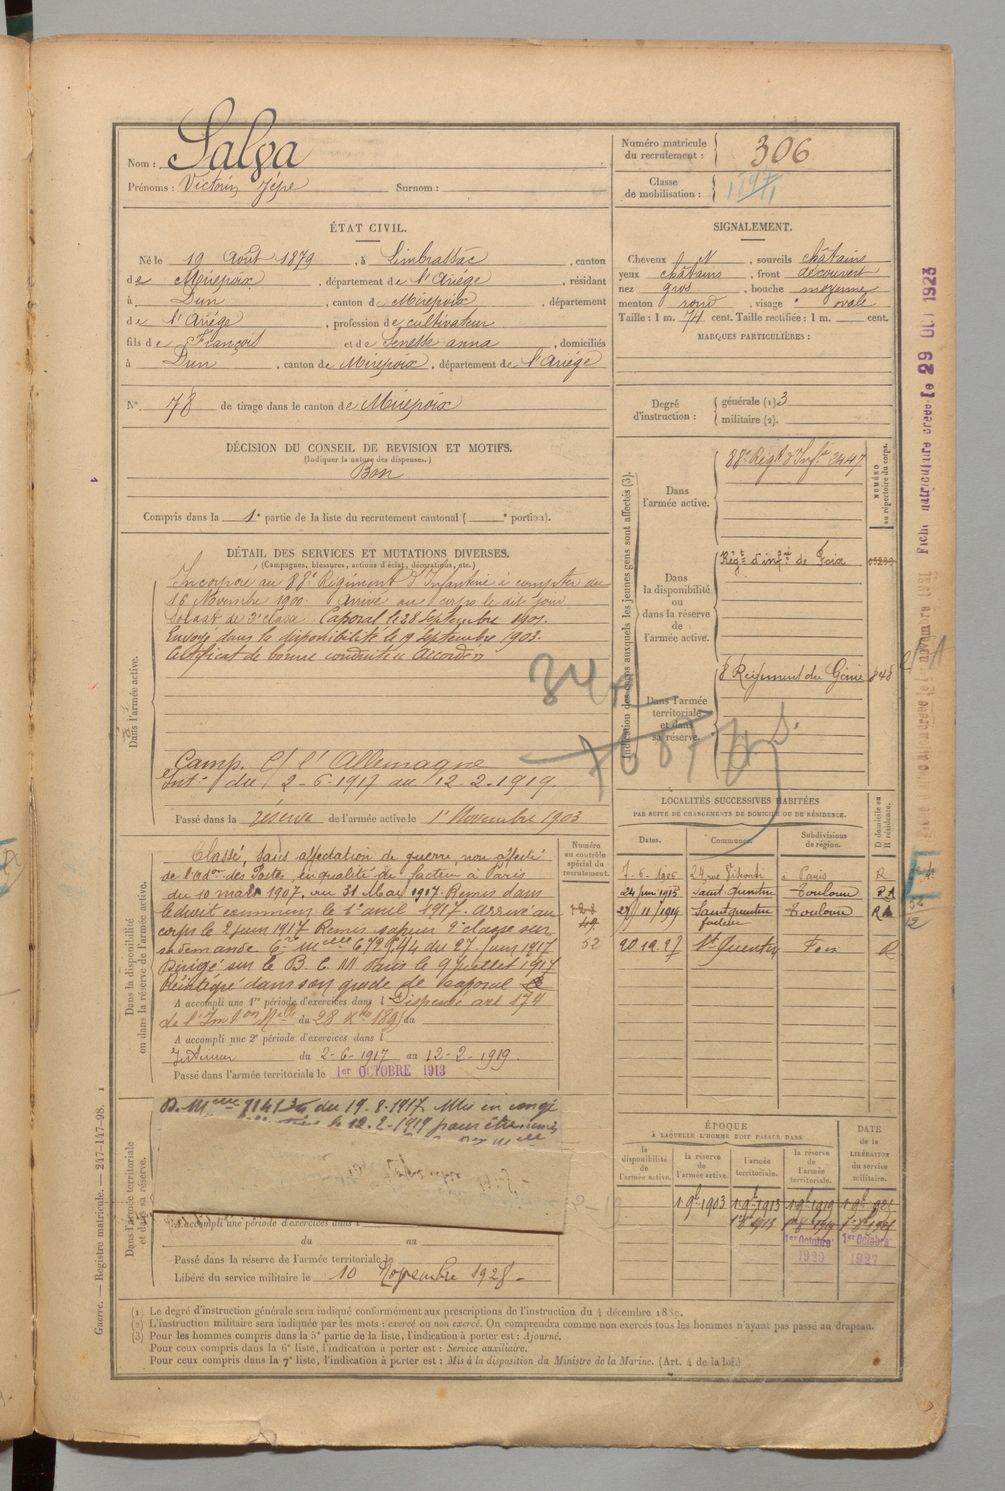 Nom : Salva
Prénoms : Victorin Surnom :
Numéro matricule du recrutement : 306
Classe de mobilisation : 1897
ÉTAT CIVIL.
Né le 19 Août 1879, à Limbrassac, canton
de Mirepoix, département de l'Ariége, résidant
à Dun, canton de Mirepoix, département
de l'Ariége, profession de cultivateur
fils de François et de Senesse anna, domiciliés
à Dun, canton de Mirepoix, département de l'Ariége
N° 78 de tirage dans le canton de Mirepoix
SIGNALEMENT.
Cheveux N, sourcils châtains
yeux châtains, front découvert
nez gros, bouche moyenne
menton rond, visage ovale
Taille : 1 m. 74 cent. Taille rectifiée : 1 m. cent.
MARQUES PARTICULIÈRES :
Degré d'instruction : générale (1) 3
militaire (2).
DÉCISION DU CONSEIL DE REVISION ET MOTIFS.
(Indiquer la nature des dispenses.)
Bon
Compris dans la 1e partie de la liste du recrutement cantonal ( e portion).
DÉTAIL DES SERVICES ET MUTATIONS DIVERSES.
(Campagnes, blessures, actions d'éclat, décorations, etc.)
Dans l'armée active.
Incorporé au 88e Régiment d'Infanterie à compter du
16 Novembre 1900. Arrivé au corps le dit jour
soldat de 2e classe. Caporal le 28 septembre 1901.
Envoyé dans la disponibilité le 9 Septembre 1903.
Certificat de bonne conduite Accordé
Camp. c/ l'Allemagne
Intr du 2-6-1917 au 12.2.1919.
Passé dans la réserve de l'armée active le 1er Novembre 1903
Indication des corps auxquels les jeunes gens sont affectés (3).
NUMÉRO au répertoire du corps.
Dans l'armée active.
88e Régt d'Infie 2447
Dans la disponibilité ou dans la réserve de l'armée active.
Régt d'inft de Foix
Dans l'armée territoriale et dans sa réserve.
8 Régiment du Génie
LOCALITÉS SUCCESSIVES HABITÉES
PAR SUITE DE CHANGEMENTS DE DOMICILE OU DE RÉSIDENCE.
Dates. Communes. Subdivisions de région. D domicile ou R résidence.
7-6-1906 24 rue Visconti à Paris R
24 juin 1913 Saint quentin Toulouse
29/11/1914 Saint quentin facteur Toulouse
20.12.27 St Quentin Foix R
Dans la disponibilité ou dans la réserve de l'armée active.
Numéro au contrôle spécial du recrutement.
52
Classé, sans affectation de guerre, non affecté
de l'adon des Postes en qualité de facteur à Paris
du 10 mars 1907 au 31 Mars 1917. Remis dans
le droit commun le 1er avril 1917. Arrivé au
corps le 2 juin 1917 Remis sapeur 2e classe sur
sa demande du 27 juin 1917
Dirigé sur le B. C. M Paris le 9 juillet 1917
Réintégré dans son grade de Caporal
A accompli une 1re période d'exercices dans l Dispensé art 174
de l'Inston Melle du 28 Xbre 1895 au
A accompli une 2e période d'exercices dans l
Intérieur du 2-6-1917 au 12-2-1919.
Passé dans l'armée territoriale le 1er OCTOBRE 1913
Dans l'armée territoriale et dans sa réserve.
du 19.8.1917. Mis en congé
le 12.2-1919 pour être
A accompli une période d'exercices dans l
du au
Passé dans la réserve de l'armée territoriale le
Libéré du service militaire le 10 Novembre 1928.
ÉPOQUE
À LAQUELLE L'HOMME DOIT PASSER DANS
la disponibilité de l'armée active. la réserve de l'armée active. l'armée territoriale. la réserve de l'armée territoriale.
DATE de la LIBÉRATION du service militaire.
1er Octobre 1920 1er Octobre 1927
Fiche matriculaire créée le 29 OCT 1923
Guerre. — Registre matricule. — 247-147-98.
(1) Le degré d'instruction générale sera indiqué conformément aux prescriptions de l'instruction du 4 décembre 1889.
(2) L'instruction militaire sera indiquée par les mots : exercé ou non exercé. On comprendra comme non exercés tous les hommes n'ayant pas passé au drapeau.
(3) Pour les hommes compris dans la 5e partie de la liste, l'indication à porter est : Ajourné.
Pour ceux compris dans la 6e liste, l'indication à porter est : Service auxiliaire.
Pour ceux compris dans la 7e liste, l'indication à porter est : Mis à la disposition du Ministre de la Marine. (Art. 4 de la loi.)